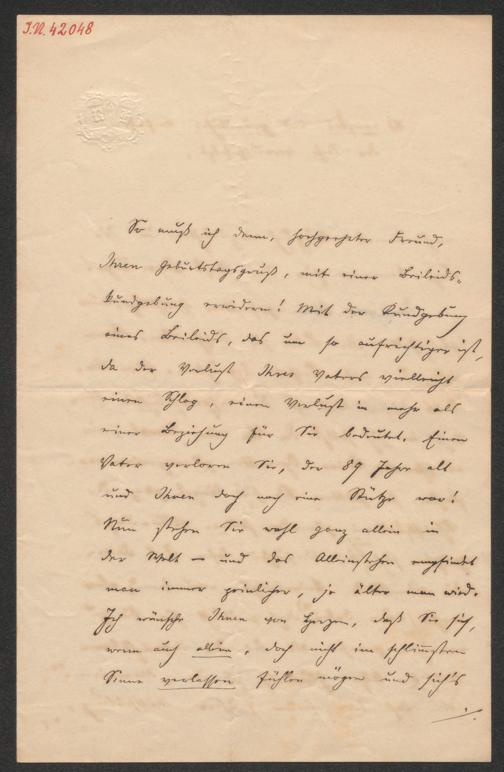 I.N. 42048
So muß ich denn, hochgeehrter Freund,
Ihren Geburtstagsgruß, mit einer Beileids-
kundgebung erwidern! Mit der Kundgebung
eines Beileids, das um so aufrichtiger ist,
da der Verlust Ihres Vaters vielleicht
einen Schlag, einen Verlust in mehr als
einer Beziehung für Sie bedeutet. Einen
Vater verloren Sie, der 89 Jahre alt
und Ihnen doch noch eine Stütze war!
Nun stehen Sie wohl ganz allein in
der Welt – und das Alleinstehen empfindet
man immer peinlicher, je älter man wird.
Ich wünsche Ihnen von Herzen, daß Sie sich,
wenn auch allein, doch nicht im schlimmsten
Sinne verlassen fühlen mögen und sich's
./.